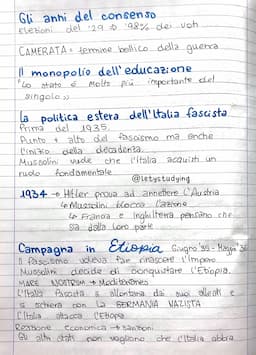 Gli anni del consenso
elezioni del '29 → 98% dei voti
CAMERATA = termine bellico della guerra
Il monopolio dell'educazione
"Lo stato è molto più importante del
singolo"
La politica estera dell'Italia fascista
Prima del 1935
Punto + alto del fascismo ma anche
l'inizio della decadenza.
Mussolini vuole che l'Italia acquisti un
ruolo fondamentale
@letystudying
1934 → Hitler prova ad annettere l'Austria
↳ Mussolini blocca l'azione
↳ Francia e Inghilterra pensano che
sia dalla loro parte
Campagna in Etiopia Giugno '35 - Maggio '36
Il fascismo voleva far rinascere l'impero
Mussolini decide di conquistare l'Etiopia.
MARE NOSTRUM → Mediterraneo
L'Italia fascista si allontana dai suoi alleati e
si schiera con la GERMANIA NAZISTA
L'Italia attacca l'Etiopia
Reazione economica → sanzioni
Gli altri stati non vogliono che l'Italia abbia